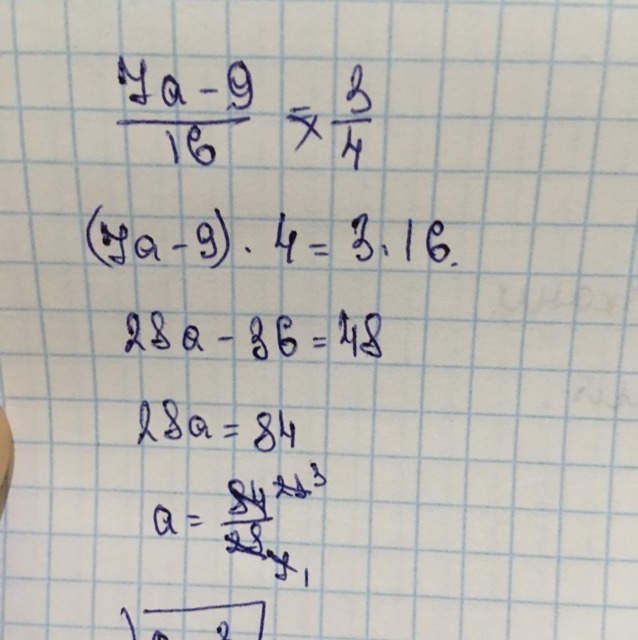 7a - 9 / 16 = 3 / 4
(7a - 9) · 4 = 3 · 16.
28a - 36 = 48
28a = 84
a = 84 21 3 / 28 7 1